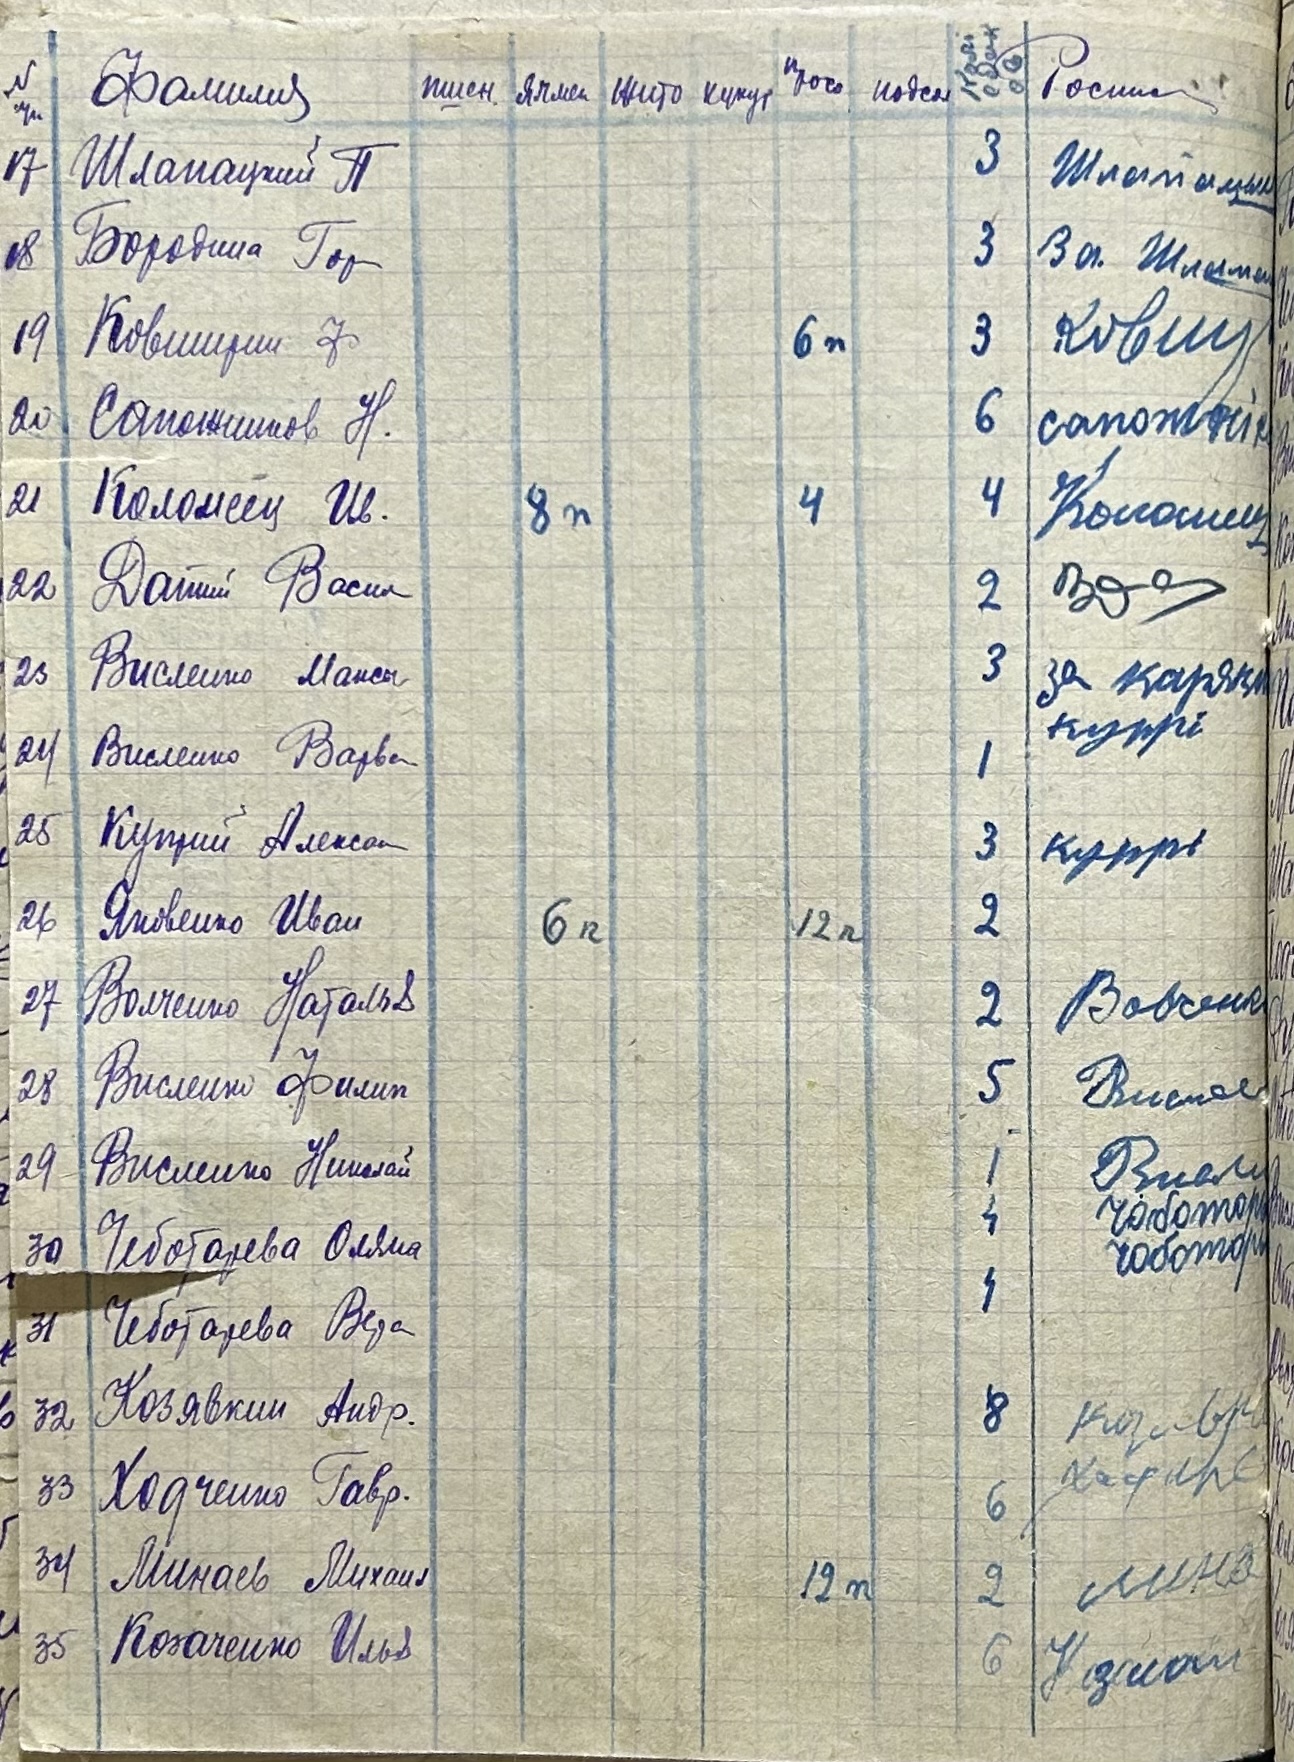 N Фамилия пшен. Ячмен Жито кукур просо подсол Росписи
17 Шлапацкий П 3 Шлапацки
18 Бородина Гор 3 За. Шлапа
19 Ковширин Ф 6 п 3 Ковшир
20 Сапожников Н. 6 сапожнік
21 Коломеец Ив. 8 п 4 4 Коломиец
22 Датий Васил 2
23 Висленко Максы 3 за карякі
куррі
24 Висленко Варва 1
25 Куприй Алексан 3 куррі
26 Яновенко Иван 6 п 12 п 2
27 Волченко Наталья 2 Вовченк
28 Висленко Филип 5 Висле
29 Висленко Николай 1 Висл
30 Чеботарева Оляна 1 Чоботарь
чоботарь
31 Чеботарева Вера 1
32 Козявкин Андр. 8
33 Ходченко Гавр. 6
34 Минаев Михаил 12 п 2 мина
35 Козаченко Илья 6